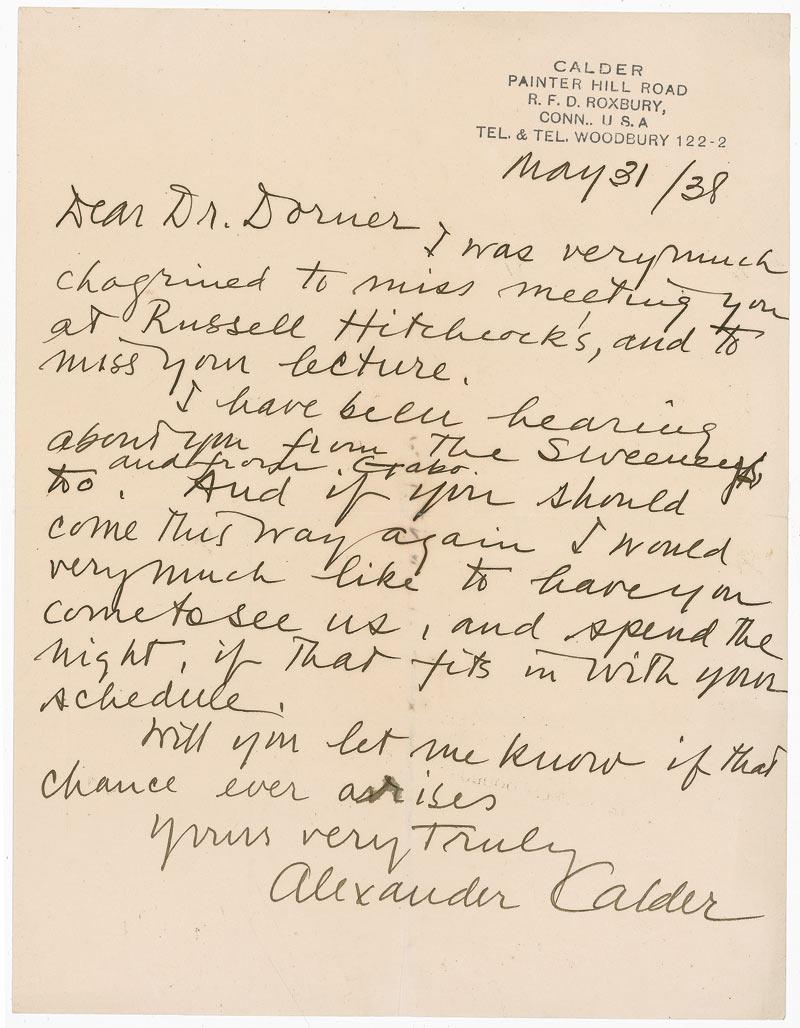 CALDER
PAINTER HILL ROAD
R. F. D. ROXBURY,
CONN.. U S. A
TEL. & TEL. WOODBURY 122-2
May 31 /38
Dear Dr. Dorner
I was very much
chagrined to miss meeting you
at Russell Hitchcock's, and to
miss your lecture.
I have been hearing
about you from the Sweeneys,
and from Gabo
too. And if you should
come this way again I would
very much like to have you
come to see us, and spend the
night, if that fits in with your
schedule.
Will you let me know if that
chance ever arises
Yours very truly
Alexander Calder